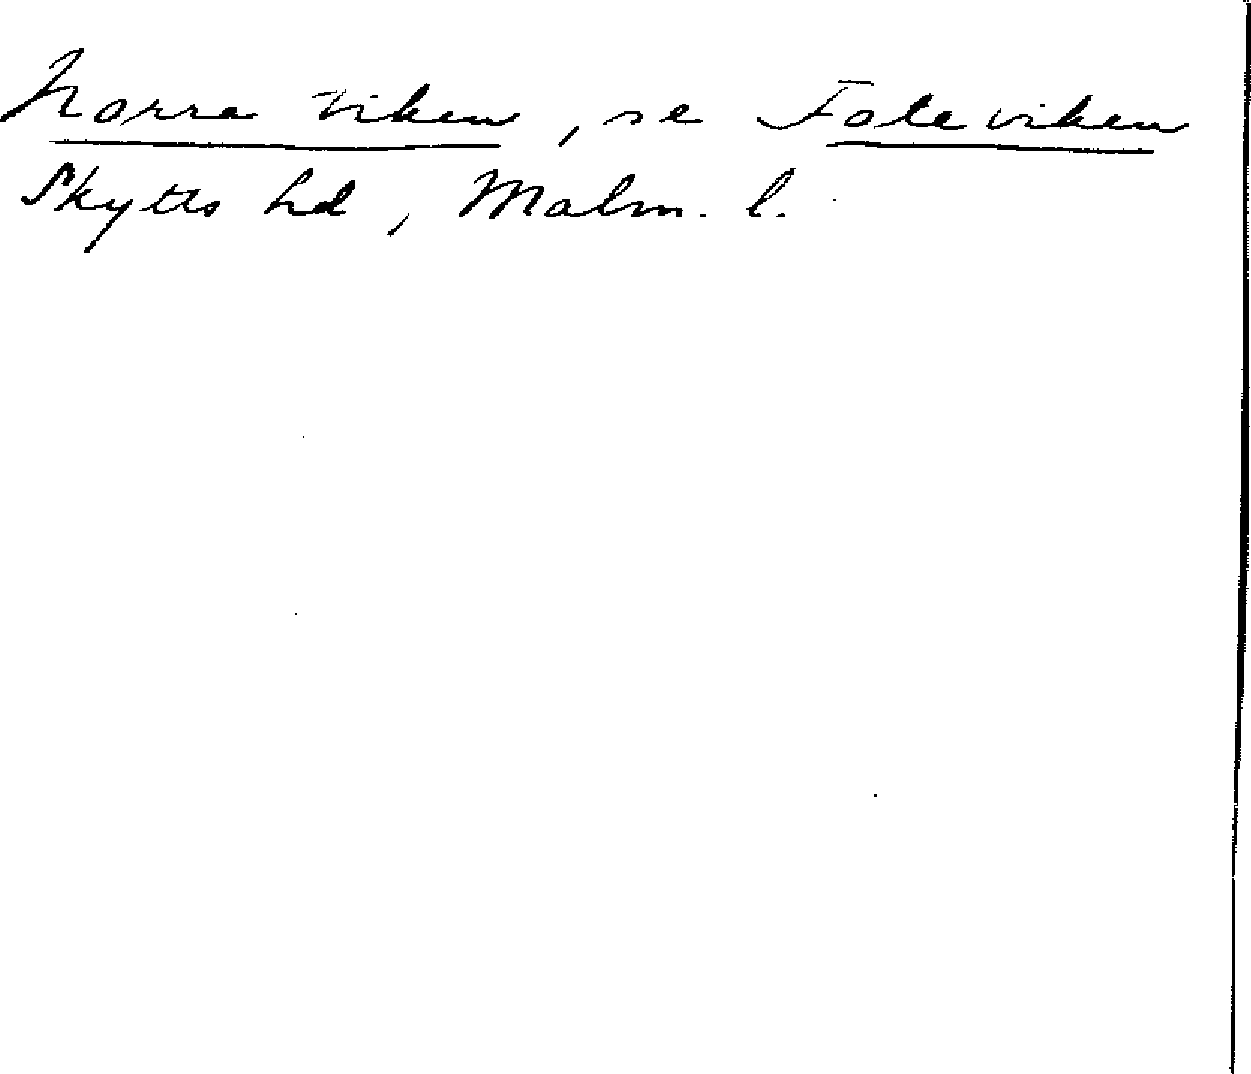 Norra Viken, se Foteviken
Skytts hd, Malm. l.